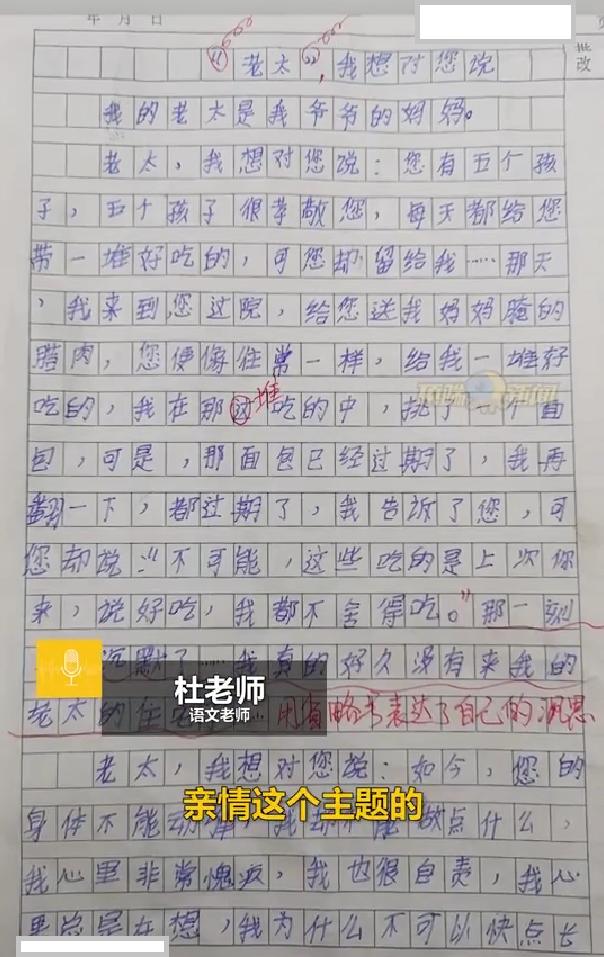 年 月 日
批改
“老太”，我想对您说
我的老太是我爷爷的妈妈。
老太，我想对您说：您有五个孩
子，五个孩子很孝敬您，每天都给您
带一堆好吃的，可您却留给我……那天
，我来到您过院，给您送我妈妈腌的
腊肉，您便像往常一样，给我一堆好
吃的，我在那这堆吃的中，挑了一个面
包，可是，那面包已经过期了，我再
翻一下，都过期了，我告诉了您，可
您却说：“不可能，这些吃的是上次你
来，说好吃，我都不舍得吃。”那一刻
沉默了……我真的好久没有来我的
老太的住 用省略号表达了自己的沉思
杜老师
语文老师
老太，我想对您说：如今，您的
亲情这个主题的
身体不能动 做点什么，
我心里非常愧疚，我也很自责，我心
里总是在想，我为什么不可以快点长